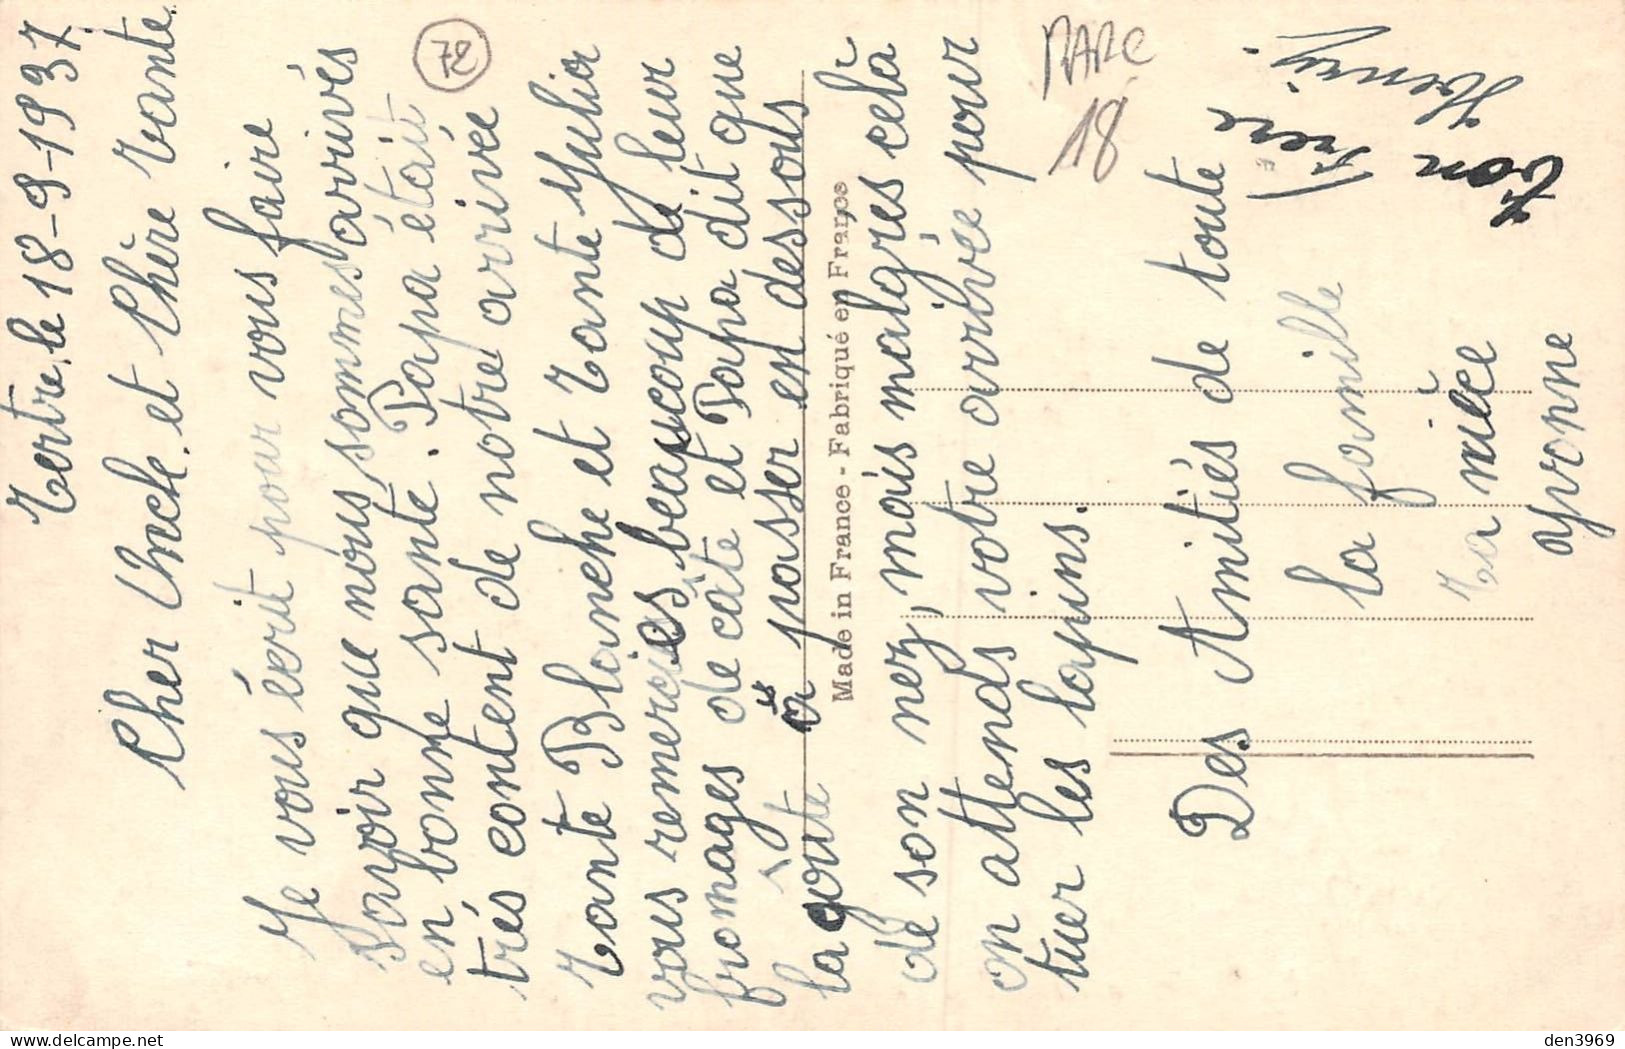 Tertre, le 18-9-1937
Cher Oncle, et Chère Tante.
Je vous écrit pour vous faire
savoir que nous sommes arrivés
en bonne sante. Papa était
trés content de notre arrivée
Tante Blanche et Tante Julia
vous remerciês beaucoup de leur
fromages de câte et Papa dit que
la goûte à passer en dessous
de son nez, mais malgrés cela
on attends votre arrivée pour
tuer les lapins.
Des Amitiés de toute
la famille
Ta nièce
Yvonne
Ton Frère
Henry.
72
MARC
18
Made in France - Fabriqué en France
den3969